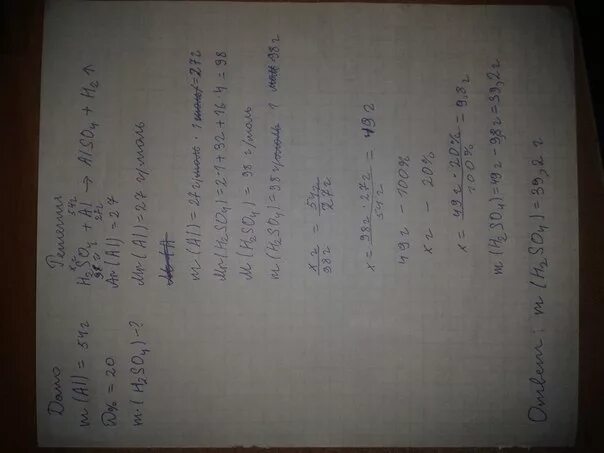 Дано
m(Al) = 54г
ω% = 20
m(H₂SO₄) - ?
Решение
xг 54г
H₂SO₄ + Al → AlSO₄ + H₂↑
98г 27г
Ar(Al) = 27
Mr(Al) = 27 г/моль
m(Al) = 27г/моль · 1моль = 27г
Mr(H₂SO₄) = 2·1+32+16·4 = 98
M(H₂SO₄) = 98 г/моль
m(H₂SO₄) = 98г/моль · 1 моль 98г
xг/98г = 54г/27г
x = 98г·27г/54г = 49г
49г - 100%
xг - 20%
x = 49г·20%/100% = 9,8г
m(H₂SO₄) = 49г - 9,8г = 39,2г
Ответ: m(H₂SO₄) = 39,2г